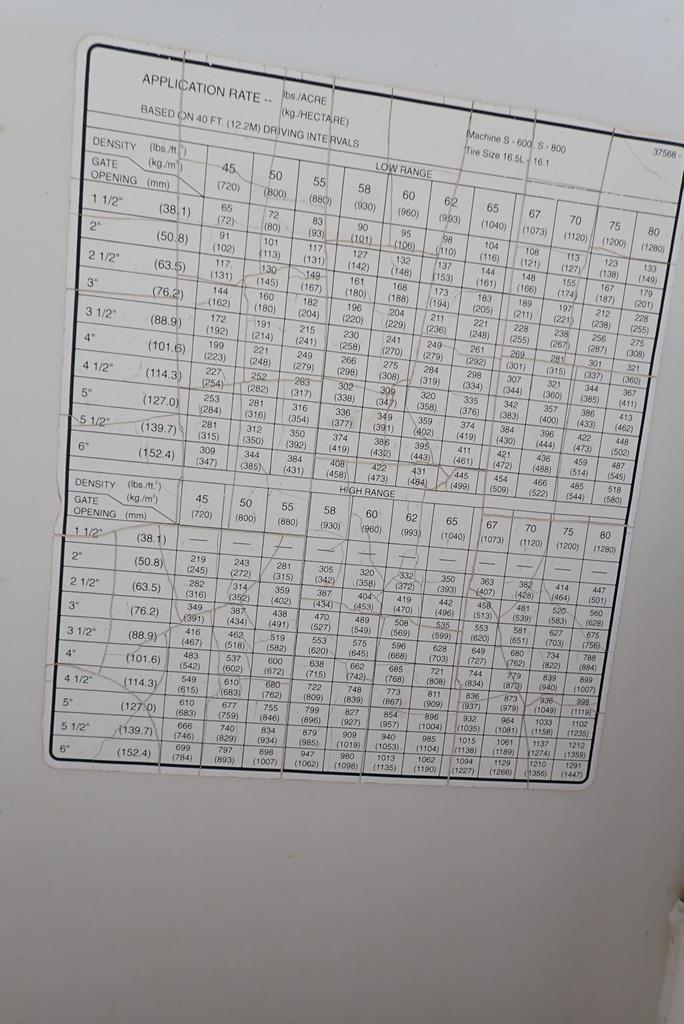 APPLICATION RATE -- lbs./ACRE
(kg./HECTARE)
BASED ON 40 FT. (12.2M) DRIVING INTERVALS
Machine S - 600, S - 800
Tire Size 16.5L - 16.1
37568-
LOW RANGE
DENSITY (lbs./ft.³) 45 50 55 58 60 62 65 67 70 75 80
GATE (kg./m³) (720) (800) (880) (930) (960) (993) (1040) (1073) (1120) (1200) (1280)
OPENING (mm)
1 1/2" (38.1) 65 72 83 90 95 98 104 108 113 123 133
(72) (80) (93) (101) (106) (110) (116) (121) (127) (138) (149)
2" (50.8) 91 101 117 127 132 137 144 148 155 167 179
(102) (113) (131) (142) (148) (153) (161) (166) (174) (187) (201)
2 1/2" (63.5) 117 130 149 161 168 173 183 189 197 212 228
(131) (145) (167) (180) (188) (194) (205) (211) (221) (238) (255)
3" (76.2) 144 160 182 196 204 211 221 228 238 256 275
(162) (180) (204) (220) (229) (236) (248) (255) (267) (287) (308)
3 1/2" (88.9) 172 191 215 230 241 249 261 269 281 301 321
(192) (214) (241) (258) (270) (279) (292) (301) (315) (337) (360)
4" (101.6) 199 221 249 266 275 284 298 307 321 344 367
(223) (248) (279) (298) (308) (319) (334) (344) (360) (385) (411)
4 1/2" (114.3) 227 252 283 302 309 320 335 342 357 386 413
(254) (282) (317) (338) (347) (358) (376) (383) (400) (433) (462)
5" (127.0) 253 281 316 336 349 359 374 384 396 422 448
(284) (316) (354) (377) (391) (402) (419) (430) (444) (473) (502)
5 1/2" (139.7) 281 312 350 374 386 395 411 421 436 459 487
(315) (350) (392) (419) (432) (443) (461) (472) (488) (514) (545)
6" (152.4) 309 344 384 408 422 431 445 454 466 485 518
(347) (385) (431) (458) (473) (484) (499) (509) (522) (544) (580)
HIGH RANGE
DENSITY (lbs./ft.³) 45 50 55 58 60 62 65 67 70 75 80
GATE (kg./m³) (720) (800) (880) (930) (960) (993) (1040) (1073) (1120) (1200) (1280)
OPENING (mm)
1 1/2" (38.1) — — — — — — — — — — —
2" (50.8) 219 243 281 305 320 332 350 363 382 414 447
(245) (272) (315) (342) (358) (372) (393) (407) (428) (464) (501)
2 1/2" (63.5) 282 314 359 387 404 419 442 458 481 520 560
(316) (352) (402) (434) (453) (470) (496) (513) (539) (583) (628)
3" (76.2) 349 387 438 470 489 508 535 553 581 627 675
(391) (434) (491) (527) (549) (569) (599) (620) (651) (703) (756)
3 1/2" (88.9) 416 462 519 553 575 596 628 649 680 734 788
(467) (518) (582) (620) (645) (668) (703) (727) (762) (822) (884)
4" (101.6) 483 537 600 638 662 685 721 744 779 839 899
(542) (602) (672) (715) (742) (768) (808) (834) (873) (940) (1007)
4 1/2" (114.3) 549 610 680 722 748 773 811 836 873 936 998
(615) (683) (762) (809) (839) (867) (909) (937) (979) (1049) (1119)
5" (127.0) 610 677 755 799 827 854 896 932 964 1033 1102
(683) (759) (846) (896) (927) (957) (1004) (1035) (1081) (1158) (1235)
5 1/2" (139.7) 666 740 834 879 909 940 985 1015 1061 1137 1212
(746) (829) (934) (985) (1019) (1053) (1104) (1138) (1189) (1274) (1359)
6" (152.4) 699 797 898 947 980 1013 1062 1094 1129 1210 1291
(784) (893) (1007) (1062) (1098) (1135) (1190) (1227) (1266) (1356) (1447)